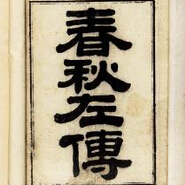 春秋左傳